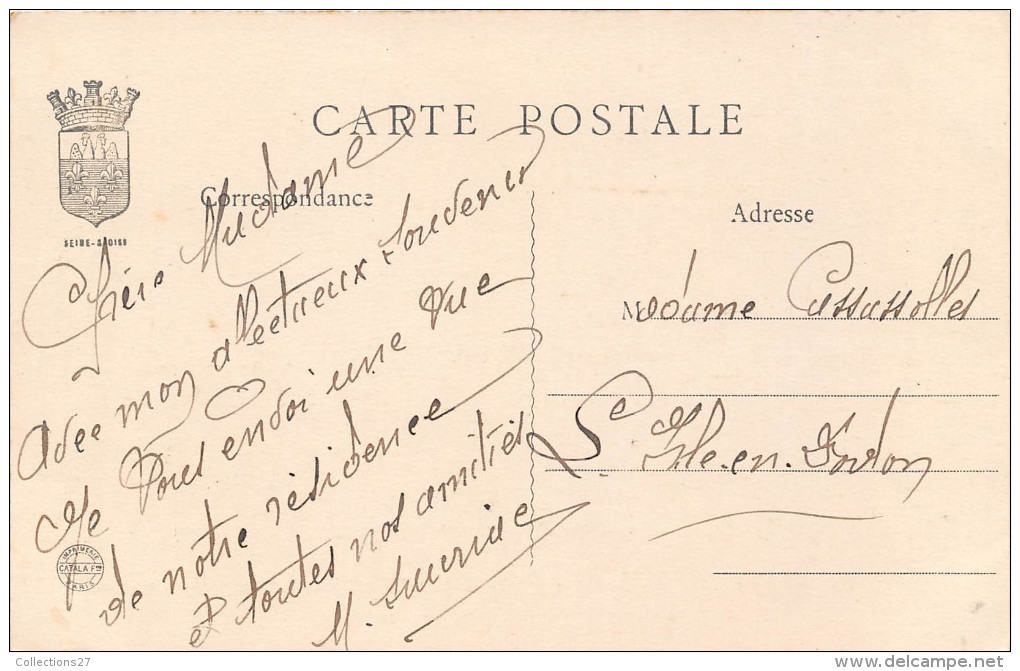 CARTE POSTALE
Correspondance
Adresse
SEINE-&-OISE
Chère Madame
Avec mon affectueux souvenir
Je vous envoi une vue
de notre résidence
et toutes nos amitiés
M.
Madame Cassassolles
L'Isle-en-Dodon
IMPRIMERIE
CATALA Fres
PARIS
Collections27
www.delcampe.net